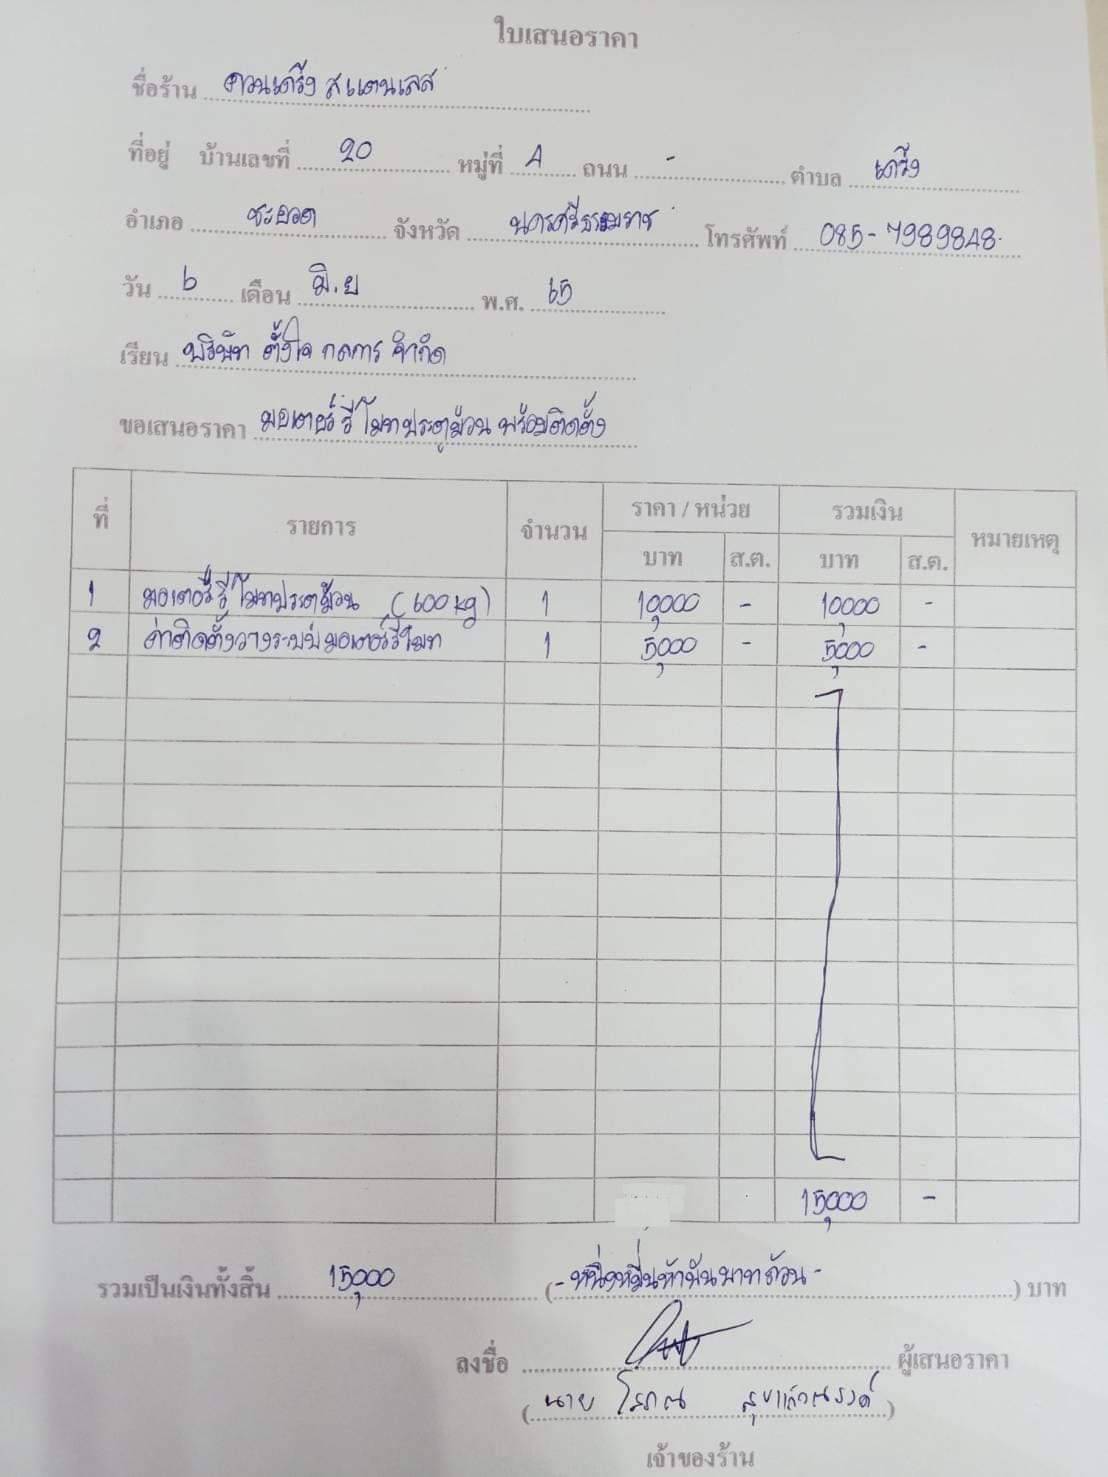 ใบเสนอราคา
ชื่อร้าน ควนเคร็ง สแตนเลส
ที่อยู่ บ้านเลขที่ 20 หมู่ที่ 4 ถนน - ตำบล เคร็ง
อำเภอ ชะอวด จังหวัด นครศรีธรรมราช โทรศัพท์ 085-7989848
วัน 6 เดือน มิ.ย พ.ศ. 65
เรียน บริษัท ตั้งใจ กลการ จำกัด
ขอเสนอราคา มอเตอร์รีโมทประตูม้วน พร้อมติดตั้ง
ที่ รายการ จำนวน ราคา / หน่วย รวมเงิน หมายเหตุ
บาท ส.ต. บาท ส.ต.
1 มอเตอร์รีโมทประตูม้วน (600 kg) 1 10,000 - 10,000 -
2 ค่าติดตั้งวางระบบมอเตอร์รีโมท 1 5,000 - 5,000 -
15,000 -
รวมเป็นเงินทั้งสิ้น 15,000 (- หนึ่งหมื่นห้าพันบาทถ้วน -) บาท
ลงชื่อ ผู้เสนอราคา
(นาย โสภณ)
เจ้าของร้าน